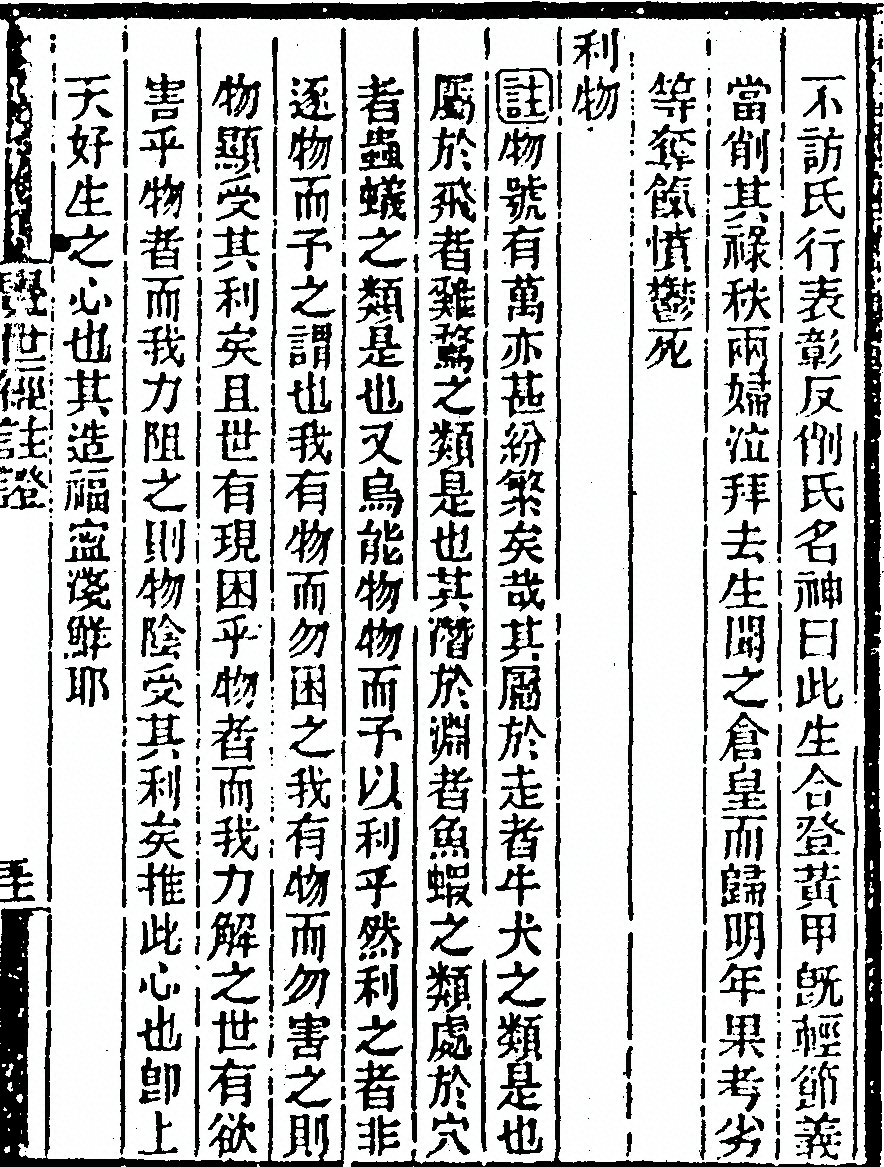 不訪氏行表彰反削氏名神曰此生合登黃甲旣輕節義
當削其祿秩兩婦泣拜去生聞之倉皇而歸明年果考劣
等奪餼憤鬱死
利物
註物號有萬亦甚紛繁矣哉其屬於走者牛犬之類是也
屬於飛者雞鶩之類是也其潛於淵者魚蝦之類處於穴
者蟲蟻之類是也又烏能物物而予以利乎然利之者非
逐物而予之謂也我有物而勿困之我有物而勿害之則
物顯受其利矣且世有現困乎物者而我力解之世有欲
害乎物者而我力阻之則物陰受其利矣推此心也卽上
天好生之心也其造福寍淺鮮耶
覺世經註證